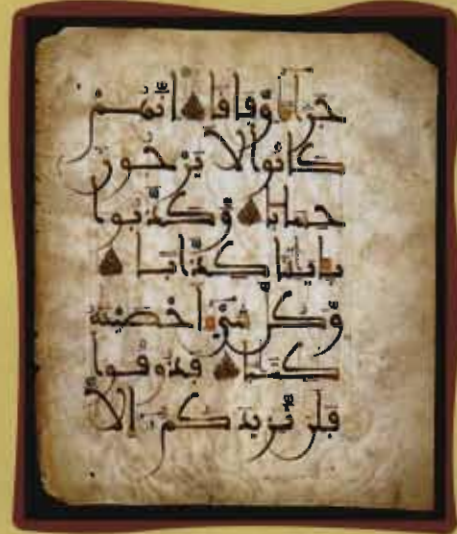 جزا وفاقا انهم
كانوا لا يرجون
حسابا وكذبوا
بايتنا كذابا
وكل شي احصينه
كتبا فذوقوا
فلن نزيدكم الا